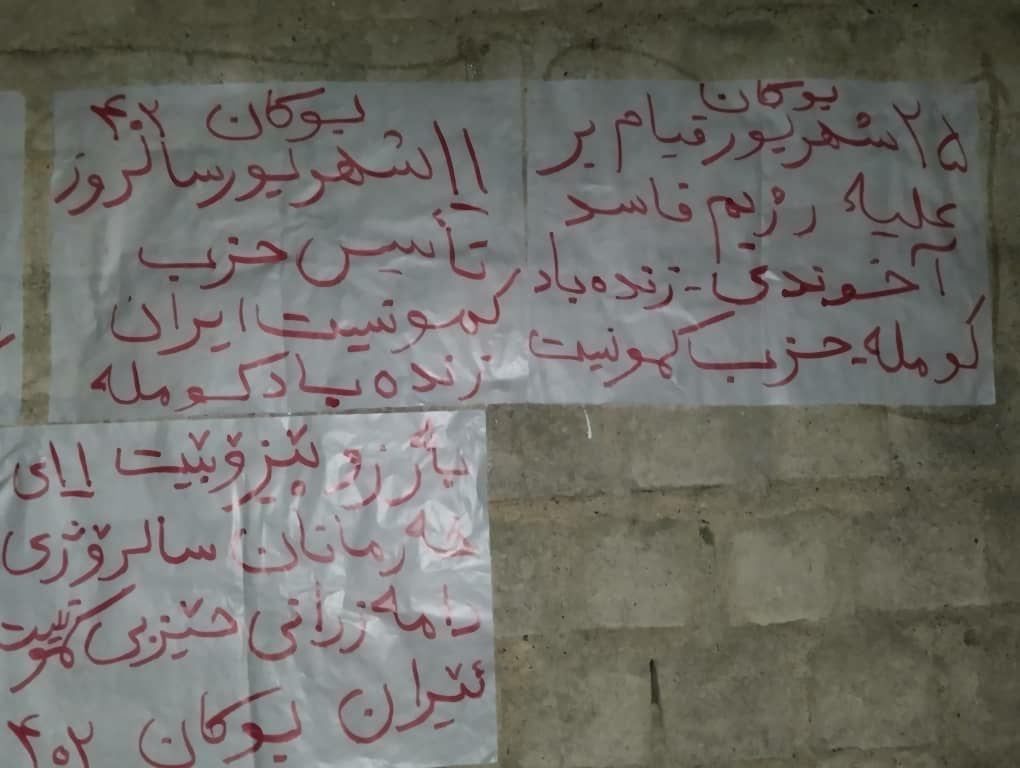 بوکان
۲۵ شهریور قیام بر
علیه رژیم فاسد
آخوندی - زنده باد
کومله - حزب کمونیست
بوکان ۴۰۲
۱۱ شهریور سالروز
تأسیس حزب
کمونیست ایران
زنده باد کومله
بەرزو پیرۆبێت ۱۱ی
خەرمانان ساڵرۆژی
دامەزرانی حێزبی کمونیست
ئێران بوکان ۴۰۲